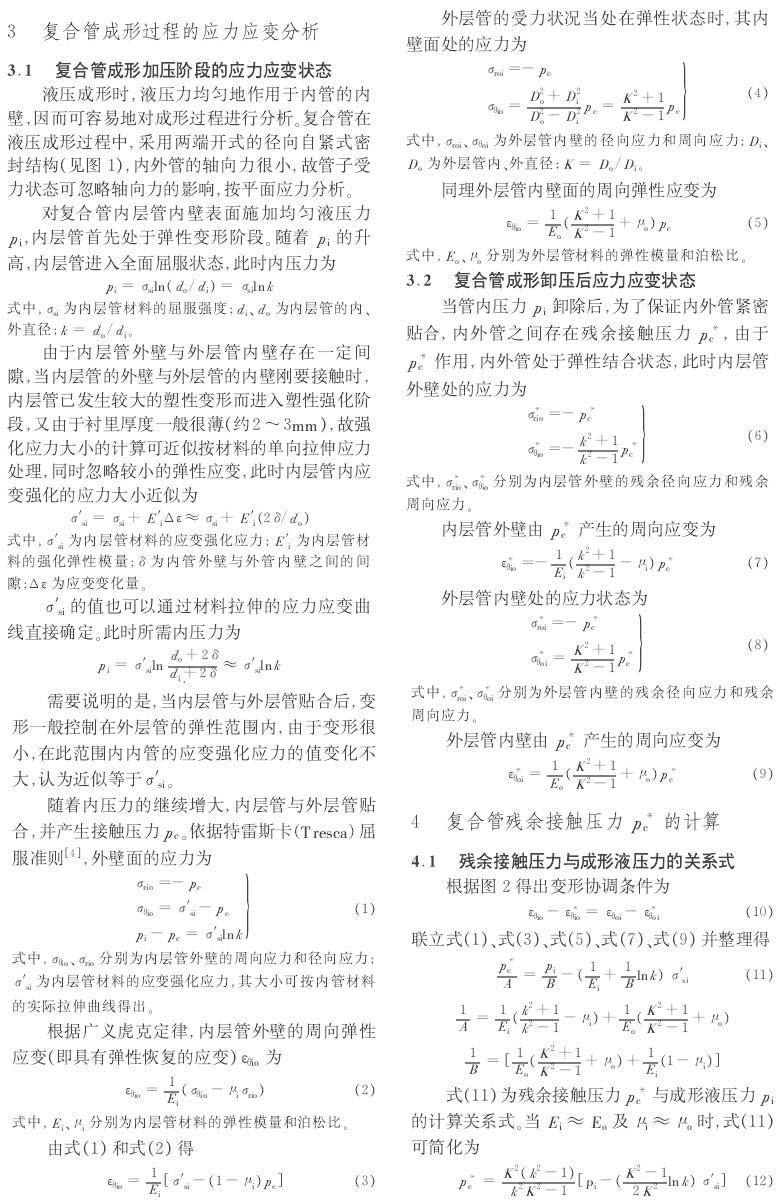 3 复合管成形过程的应力应变分析
3.1 复合管成形加压阶段的应力应变状态
液压成形时,液压力均匀地作用于内管的内
壁,因而可容易地对成形过程进行分析。复合管在
液压成形过程中,采用两端开式的径向自紧式密
封结构(见图 1),内外管的轴向力很小,故管子受
力状态可忽略轴向力的影响,按平面应力分析。
对复合管内层管内壁表面施加均匀液压力
p_i,内层管首先处于弹性变形阶段。随着 p_i 的升
高,内层管进入全面屈服状态,此时内压力为
p_i = σ_si ln(d_o/d_i) = σ_si lnk
式中,σ_si 为内层管材料的屈服强度;d_i、d_o 为内层管的内、
外直径;k = d_o/d_i。
由于内层管外壁与外层管内壁存在一定间
隙,当内层管的外壁与外层管的内壁刚要接触时,
内层管已发生较大的塑性变形而进入塑性强化阶
段,又由于衬里厚度一般很薄(约2～3mm),故强
化应力大小的计算可近似按材料的单向拉伸应力
处理,同时忽略较小的弹性应变,此时内层管内应
变强化的应力大小近似为
σ′_si = σ_si + E′_iΔε ≈ σ_si + E′_i(2δ/d_o)
式中,σ′_si 为内层管材料的应变强化应力;E′_i 为内层管材
料的强化弹性模量;δ 为内管外壁与外管内壁之间的间
隙;Δε 为应变变化量。
σ′_si 的值也可以通过材料拉伸的应力应变曲
线直接确定。此时所需内压力为
p_i = σ′_si ln (d_o+2δ)/(d_i+2δ) ≈ σ′_si lnk
需要说明的是,当内层管与外层管贴合后,变
形一般控制在外层管的弹性范围内,由于变形很
小,在此范围内内管的应变强化应力的值变化不
大,认为近似等于 σ′_si。
随着内压力的继续增大,内层管与外层管贴
合,并产生接触压力 p_c。依据特雷斯卡(Tresca)屈
服准则[4],外壁面的应力为
σ_rio = - p_c
σ_θio = σ′_si - p_c
p_i - p_c = σ′_si lnk (1)
式中,σ_θio、σ_rio 分别为内层管外壁的周向应力和径向应力;
σ′_si 为内层管材料的应变强化应力,其大小可按内管材料
的实际拉伸曲线得出。
根据广义虎克定律,内层管外壁的周向弹性
应变(即具有弹性恢复的应变)ε_θio 为
ε_θio = 1/E_i (σ_θio - μ_iσ_rio) (2)
式中,E_i、μ_i 分别为内层管材料的弹性模量和泊松比。
由式(1)和式(2)得
ε_θio = 1/E_i [σ′_si - (1 - μ_i)p_c] (3)
外层管的受力状况当处在弹性状态时,其内
壁面处的应力为
σ_roi = - p_c
σ_θio = (D_o²+D_i²)/(D_o²-D_i²) p_c = (K²+1)/(K²-1) p_c (4)
式中,σ_roi、σ_θoi 为外层管内壁的径向应力和周向应力;D_i、
D_o 为外层管内、外直径;K = D_o/D_i。
同理外层管内壁面的周向弹性应变为
ε_θio = 1/E_o ((K²+1)/(K²-1) + μ_o) p_c (5)
式中,E_o、μ_o 分别为外层管材料的弹性模量和泊松比。
3.2 复合管成形卸压后应力应变状态
当管内压力 p_i 卸除后,为了保证内外管紧密
贴合,内外管之间存在残余接触压力 p_c*,由于
p_c* 作用,内外管处于弹性结合状态,此时内层管
外壁处的应力为
σ*_rio = - p_c*
σ*_θio = - (k²+1)/(k²-1) p_c* (6)
式中,σ*_rio、σ*_θio 分别为内层管外壁的残余径向应力和残余
周向应力。
内层管外壁由 p_c* 产生的周向应变为
ε*_θio = - 1/E_i ((k²+1)/(k²-1) - μ_i) p_c* (7)
外层管内壁处的应力状态为
σ*_roi = - p_c*
σ*_θoi = (K²+1)/(K²-1) p_c* (8)
式中,σ*_roi、σ*_θoi 分别为外层管内壁的残余径向应力和残余
周向应力。
外层管内壁由 p_c* 产生的周向应变为
ε*_θoi = 1/E_o ((K²+1)/(K²-1) + μ_o) p_c* (9)
4 复合管残余接触压力 p_c* 的计算
4.1 残余接触压力与成形液压力的关系式
根据图 2 得出变形协调条件为
ε_θio - ε*_θio = ε_θoi - ε*_θoi (10)
联立式(1)、式(3)、式(5)、式(7)、式(9)并整理得
p_c*/A = p_i/B - (1/E_i + 1/B lnk) σ′_si (11)
1/A = 1/E_i ((k²+1)/(k²-1) - μ_i) + 1/E_o ((K²+1)/(K²-1) + μ_o)
1/B = [1/E_o ((K²+1)/(K²-1) + μ_o) + 1/E_i (1 - μ_i)]
式(11)为残余接触压力 p_c* 与成形液压力 p_i
的计算关系式。当 E_i ≈ E_o 及 μ_i ≈ μ_o 时,式(11)
可简化为
p_c* = K²(k²-1)/(k²K²-1) [p_i - ((K²-1)/(2K²) lnk) σ′_si] (12)